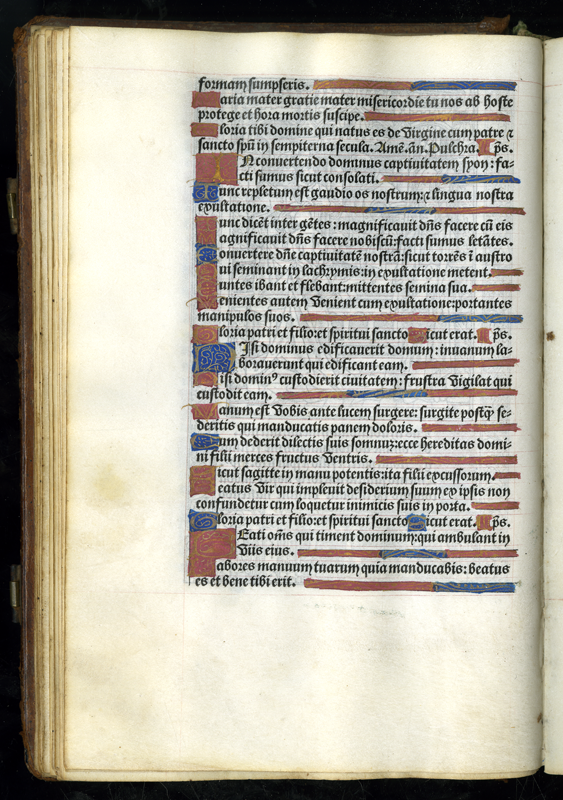 formam sumpseris.
Maria mater gratie mater misericordie tu nos ab hoste
protege et hora mortis suscipe.
Gloria tibi domine qui natus es de Virgine cum patre ⁊
sancto spū in sempiterna secula. Amē. añ. Pulchra. p̄s.
IN conuertendo dominus captiuitatem syon: fa-
cti sumus sicut consolati.
Tunc repletum est gaudio os nostrum: ⁊ lingua nostra
exultatione.
Tunc dicēt inter gētes: magnificauit dñs facere cū eis
Magnificauit dñs facere nobiscū: facti sumus letātes.
Conuertere dñe captiuitatē nostrā: sicut torrēs ī austro
Qui seminant in lachrymis: in exultatione metent.
Euntes ibant et flebant: mittentes semina sua.
Uenientes autem Venient cum exultatione: portantes
manipulos suos.
Gloria patri et filio: et spiritui sancto Sicut erat. p̄s.
NIsi dominus edificauerit domum: inuanum la-
borauerunt qui edificant eam.
Nisi dominꝰ custodierit ciuitatem: frustra Vigilat qui
custodit eam.
Vanum est Vobis ante lucem surgere: surgite postq̄ se-
deritis qui manducatis panem doloris.
Cum dederit dilectis suis somnuz: ecce hereditas domi-
ni filii merces fructus Ventris.
Sicut sagitte in manu potentis: ita filii excussorum.
Beatus Vir qui impleuit desiderium suum ex ipsis non
confundetur cum loquetur inimicis suis in porta.
Gloria patri et filio: et spiritui sancto Sicut erat. p̄s.
BEati oñs qui timent dominum: qui ambulant in
Viis eius.
Labores manuum tuarum quia manducabis: beatus
es et bene tibi erit.